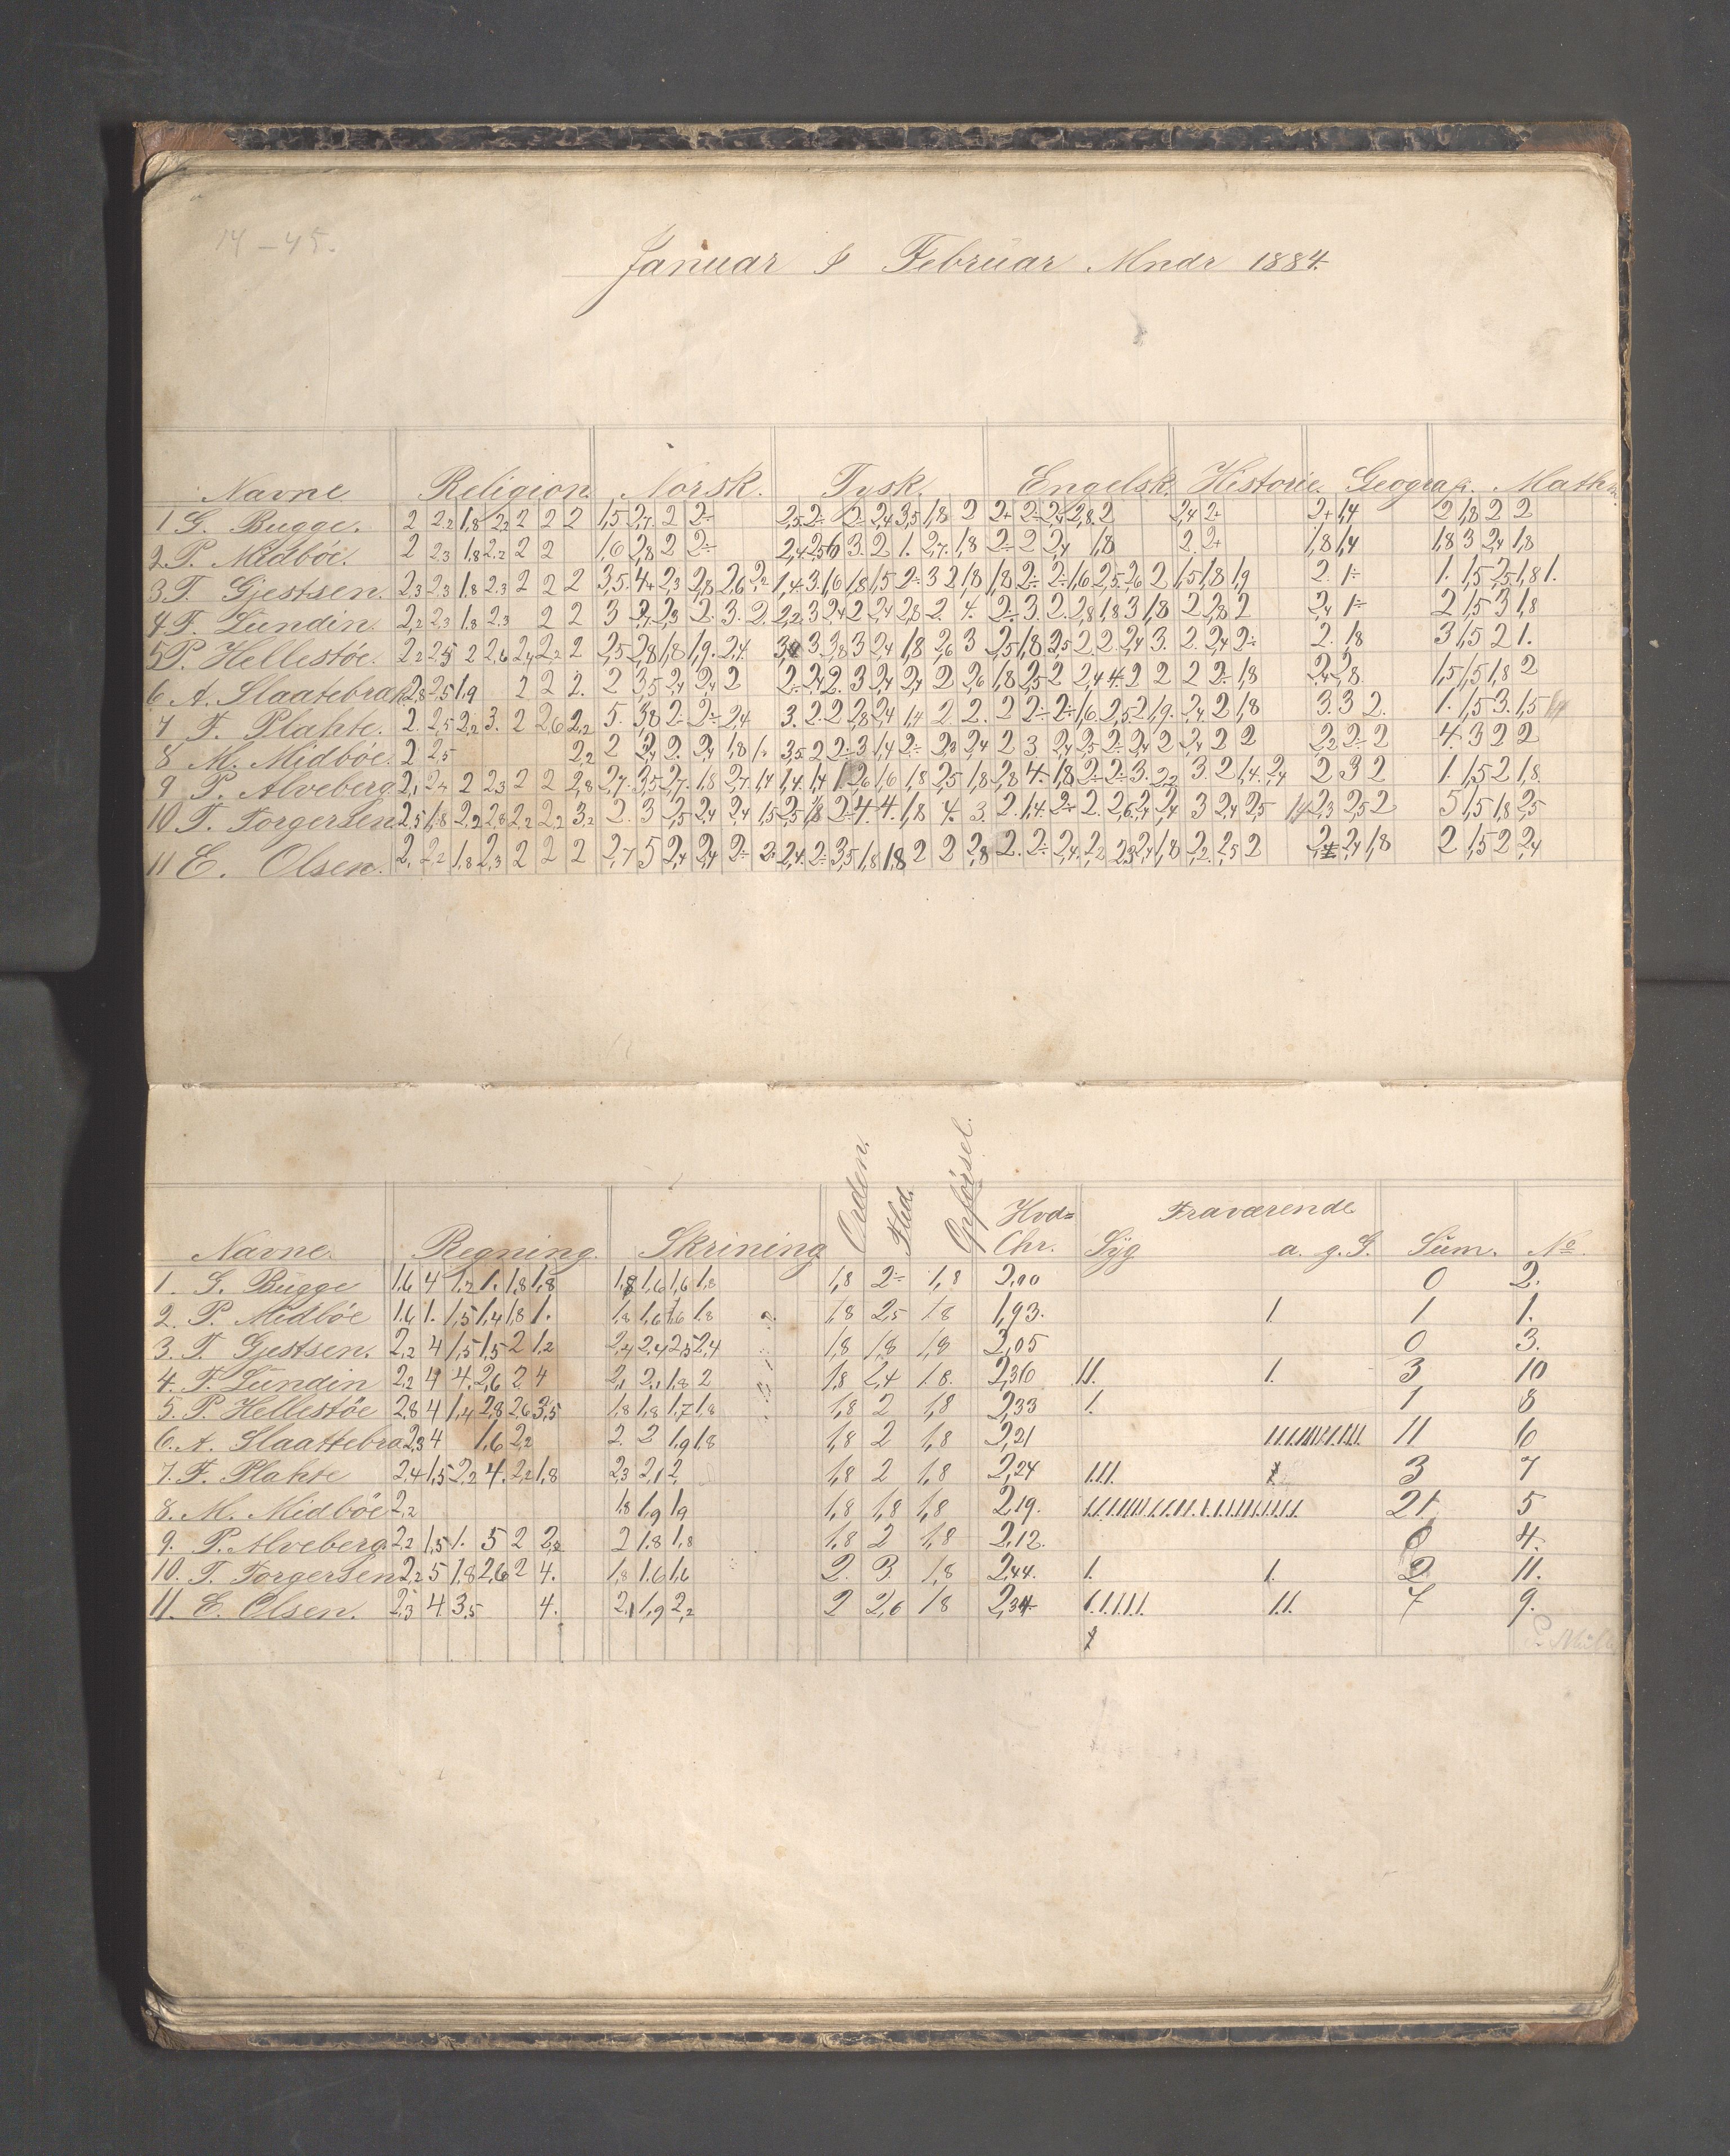 14-45.
Januar & Februar Mndr 1884.
Navne Religion Norsk. Tysk. Engelsk. Historie. Geograf. Mathm.
1 G. Bugge. 2 2,2 1,8 2,2 2 2 2 1,5 2,7 2 2÷ 2,5 2÷ 2÷ 2,4 3,5 1,8 2 2+ 2÷ 2,4 2,8 2 2,4 2+ 2+ 1,4 2 1,8 2 2
2. P. Midböe. 2 2,3 1,8 2,2 2 2 1,6 2,8 2 2÷ 3. 2 1. 2,7. 1,8 2÷ 2 2,4 1,8 2. 2+ 1,8 1,4 1,8 3 2,4 1,8
3 T. Gjestsen. 2,3 2,3 1,8 2,3 2 2 2 3,5 4+ 2,3 2,8 2,6 2,2 1,4÷ 3. 1,6 1,8 1,5 2÷ 3 2 1,8 1,8 2÷ 2÷ 1,6 2,5 2,6 2 1,5 1,8 1,9 2. 1÷ 1. 1,5 2,5 1,8 1.
4 F. Lundin. 2,2 2,3 1,8 2,3 2 2 3 2,4 2,3 2. 3. 2. 2,2 3 2,4 2 2,4 2,8 2. 4. 2÷ 3. 2. 2,8 1,8 3 1,8 2 2,8 2 2,4 1÷ 2 1,5 3 1,8
5 P. Hellestöe. 2,2 2,5 2 2,6 2,4 2,2 2 2,5 2,8 1,8 1,9. 2,4. 3 2,8 3 2,4 1,8 2,6 3 2,5 1,8 2,5 2 2 2,4 3. 2. 2,4 2÷ 2. 1,8 3 1,5 2 1.
6 A. Slaatebrak 2,8 2,5 1,9 2 2 2. 2 3,5 2,4 2,4 2 2÷ 2,4 2. 3 2,4 2,4 2 2,6 1,8 2,5 2 2,4 4. 2 2 2 2÷ 1,8 2,4 2,8 1,5 1,5 1,8 2
7 F. Plahte. 2. 2,5 2,2 3. 2 2,6 2,2 5. 3,8 2÷ 2÷ 2,4 3. 2. 2 2,8 2,4 1,4 2 2. 2 2÷ 2÷ 1,6 2,5 2 1,9. 2,4 2 1,8 3. 3 2. 1. 1,5 3. 1,5
8 M. Midböe. 2 2,5 2,2 2 2,4 2. 2,4 1,8 1. 3,5 2 2÷ 3 1,4 2÷ 2,3 2,4 2 3 2,4 2,5 2÷ 2,4 2 2,4 2 2 2,2 2÷ 2 4. 3 2 2
9 P. Alveberg. 2,1 2,4 2 2,3 2 2 2,8 2,7. 3,5 2,7. 1,8 2,7 1,4 1,4. 1,4 1. 2,6 1,6 1,8 2,5 1,8 2,8 4÷ 1,8 2÷ 2÷ 3. 2,2 3. 2 1,4. 2,4 2 3 2 1. 1,5 2 1,8.
10 T. Torgersen 2,5 1,8 2,2 2,8 2,2 2,2 3,2 2. 3 2,5 2,4 2,4 1,5 2,5 1,8 2÷ 4 4. 1,8 4. 3. 2. 1,4. 2+ 2. 2,6 2,4 2,4 3 2,4 2,5 2,3 2,5 2 5 1,5 1,8 2,5
11 E. Olsen. 2, 2,2 1,8 2,3 2 2 2 2,7 5 2,4 2,4 2÷ 2÷ 2,4. 2÷ 3,5 1,8 1,8 2 2 2,8 2. 2÷ 2,4. 2,2 2,3 2,4 1,8 2,2. 2,5 2 2,4 1,8 2 1,5 2 2,4
Orden. Flid. Opförsel.
Navne. Regning. Skrivning Hvd= Chr. Fraværende Syg a. g. G. Sum. No
1. G. Bugge 1,6 4 1,2 1. 1,8 1,8 1,8 1,6 1,6 1,8 1,8 2÷ 1,8 2,00 0 2.
2. P. Midböe 1,6 1. 1,5 1,4 1,8 1. 1,8 1,6 1,6 1,8 1,8 2,5 1,8 1,93. 1. 1 1.
3. T. Gjestsen. 2,2 4 1,5 1,5 2 1,2 2,4 2,4 2,5 2,4 1,8 1,8 1,8 2,05 0 3.
4. F. Lundin 2,2 4 4. 2,6 2 4 2,1 2,1 1,8 2 1,8 2,4 1,8. 2,36 11. 1. 3 10
5. P. Hellestöe 2,8 4 1,4 2,8 2,6 3,5 1,8 1,8 1,7 1,8 1,8 2 1,8 2,33 1. 1 8
6. A. Slaattebra 2,3 4 1,6 2,2 2. 2 1,9 1,8 1,8 2 1,8 2,21 11111111111. 11 6
7. F. Plahte 2,4 1,5 2,2 4. 2,2 1,8 2,3 2,1 2, 1,8 2 1,8 2,24 111. 3 7
8. M. Midböe 2,2 1,8 1,9 1,9 1,8 1,8 1,8 2,19. 111111111111111111111. 21 5
9. P. Alveberg. 2,2 1,5 1. 5 2 2,2 2 1,8 1,8 1,8 2 1,8 2,12. 0 4.
10. T. Torgersen 2,2 5 1,8 2,6 2 4. 1,8 1,6 1,6 2. 3. 1,8 2,44. 1. 1. 2 11.
11. E. Olsen. 2,3 4 3,5 4. 2,1 1,9 2,2 2 2,6 1,8 2,34. 11111. 11. 7 9.